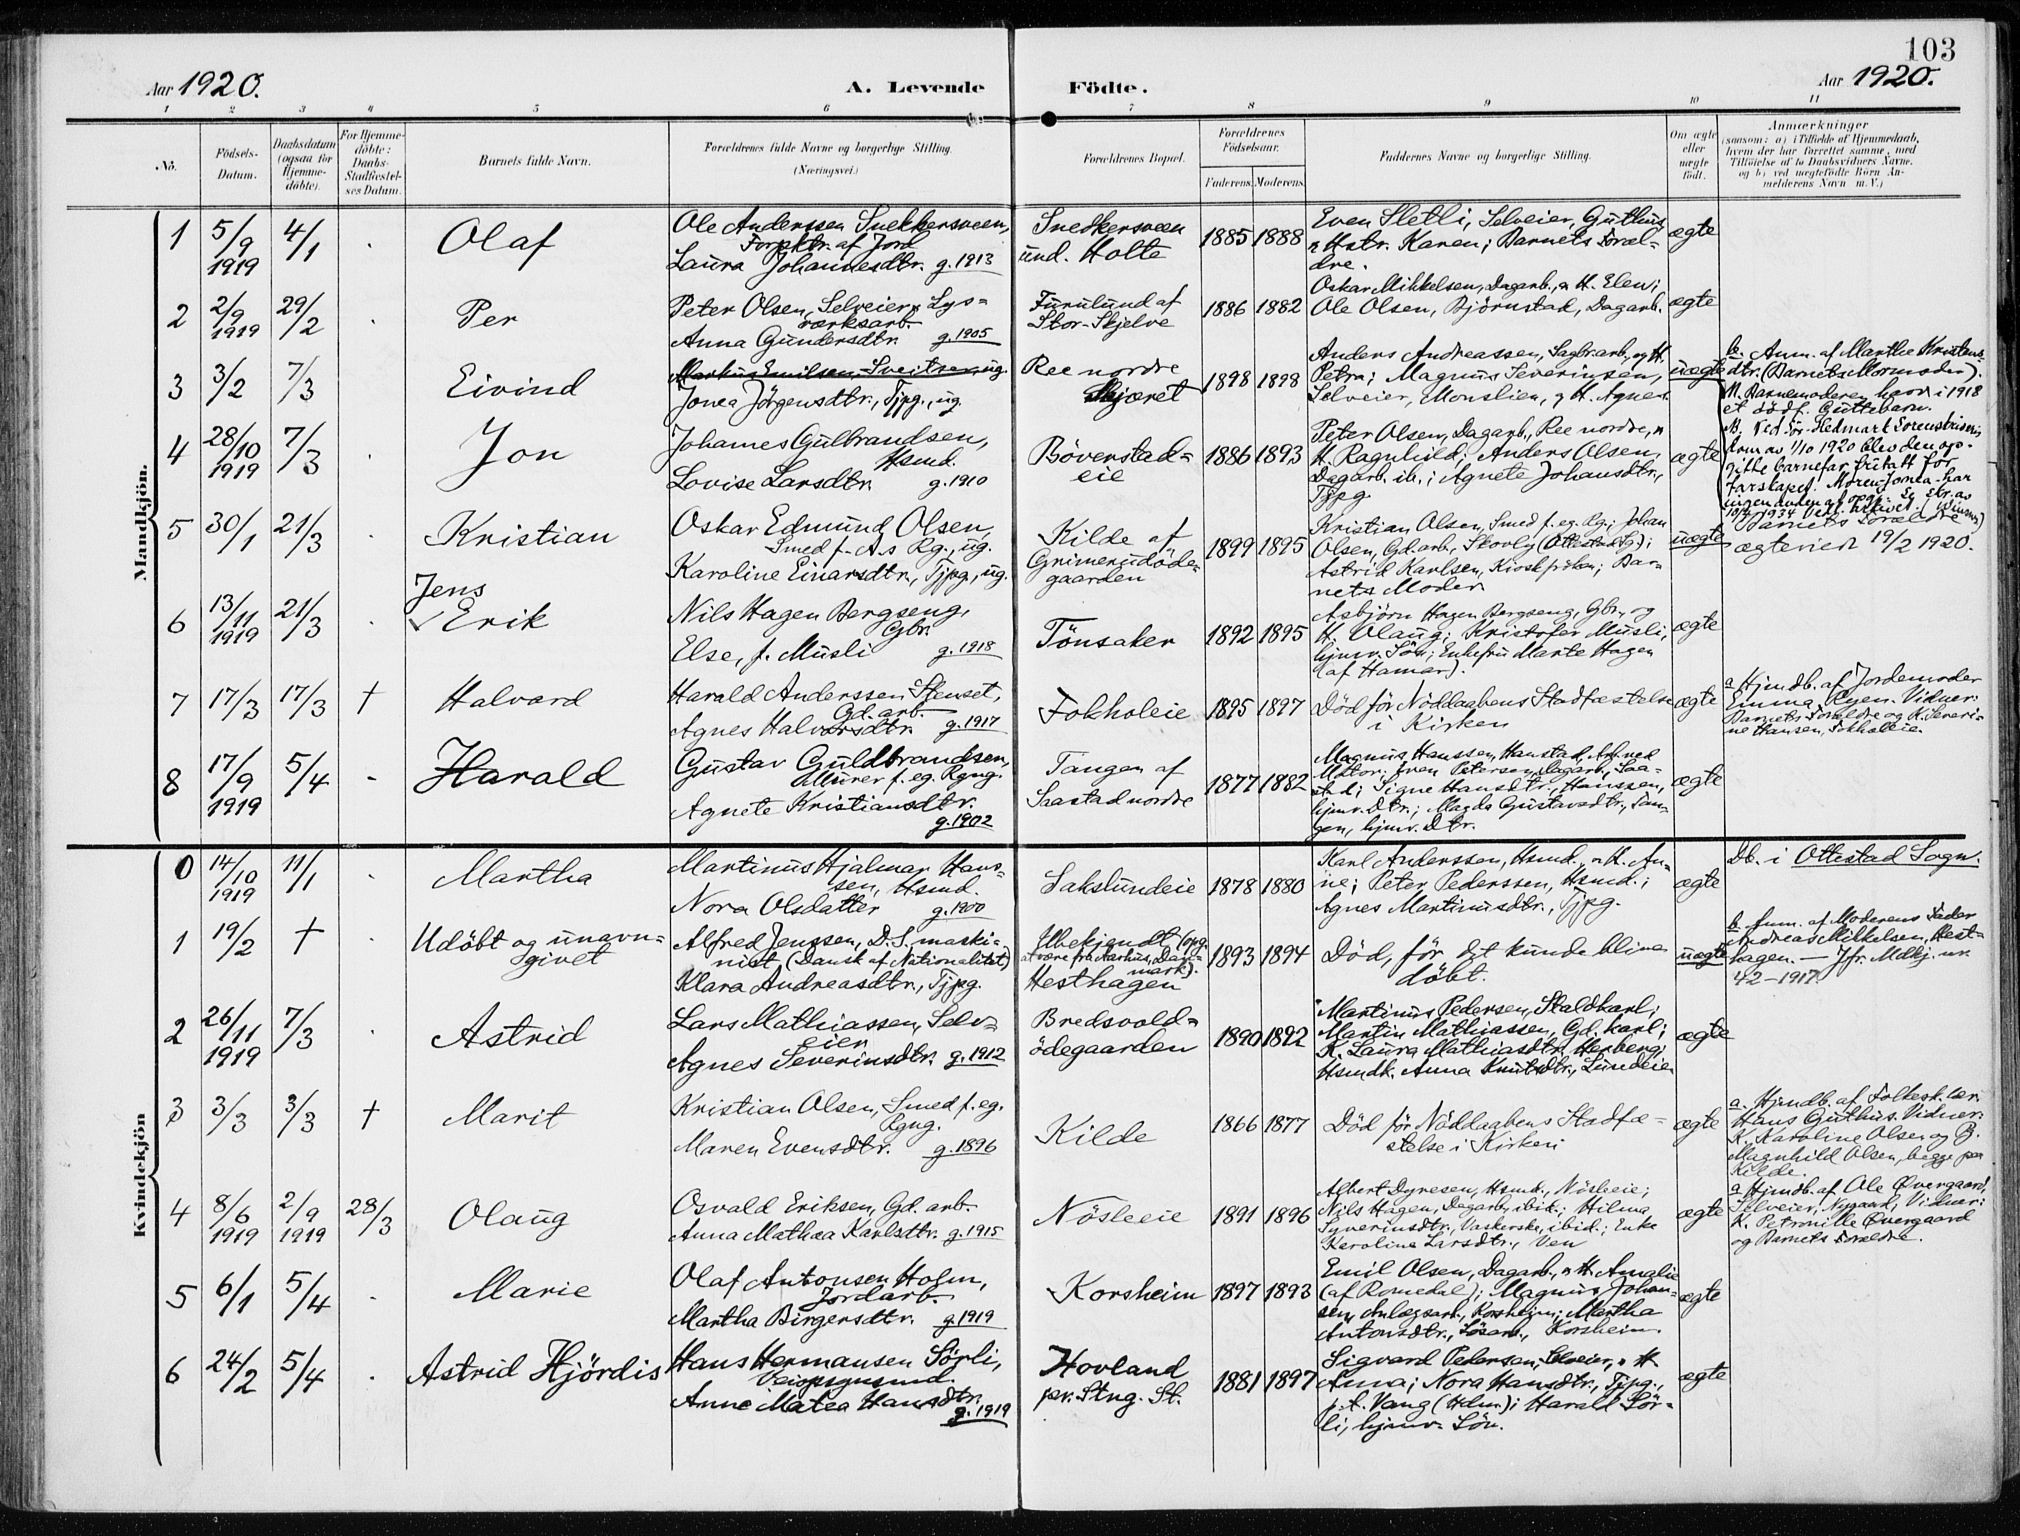 103
Aar 1920.
A. Levende Födte.
Aar 1920.
1 2 3 4 5 6 7 8 9 10 11
No.
Födsels-
Datum.
Daabsdatum
(ogsaa for
Hjemme-
döbte).
For Hjemme-
döbte:
Daabs-
Stadfæstel-
ses Datum.
Barnets fulde Navn.
Forældrenes fulde Navne og borgerlige Stilling.
(Næringsvei.)
Forældrenes Bopæl.
Forældrenes
Födselsaar.
Faderens. Moderens.
Faddernes Navne og borgerlige Stilling.
Om ægte
eller
uægte
födt.
Anmærkninger
(saasom: a) i Tilfælde af Hjemmedaab,
hvem der har forrettet samme, med
Tilföielse af to Daabsvidners Navne.
og b) ved uægtefödte Börn An-
melderens Navn m. V.)
Mandkjön.
1
5/9
1919
4/1
Olaf
Ole Anderssen Snekkersveen,
Forpktr. af Jord
Laura Johannesdtr. g. 1913
Snedkersveen
und. Holte
1885 1888
Even Sletli, Selveier, Guthus
& Hstr. Karen; Barnets Foræl-
dre.
ægte
2
2/9
1919
29/2
Per
Peter Olsen, Selveier, Lys-
værksarb.
Anna Gundersdtr. g. 1905
Furulund af
Stor-Skjelve
1886 1882
Oskar Mikkelsen, Dagarb., & H. Elen;
Ole Olsen, Björnstad, Dagarb.
ægte
3
3/2
7/3
Eivind
Markus Emilsen, Sveitser, ug.
Jonea Jörgensdtr., Tjpg., ug.
Ree nordre
Skjæret
1898 1898
Anders Andreassen, Sagbr.arb., og H.
Petra; Magnus Severinsen,
Selveier, Monslien, & H. Agnes.
uægte
b. Anm. af Marthe Kristens-
dtr. (Barnets Mormoder).
N. Barnemoderen havde i 1918
et dödf. Guttebarn.
N. Ved Sör-Hedmark Sorenskriveri
dom av 1/10 1920 blev den opp-
gitte barnefar fritatt for
farskapet. Moren Jonea har
ingen anden at oppgi. Se skr. av
1934 vedl. arkivet.
4
28/10
1919
7/3
Jon
Johannes Gulbrandsen,
Hsmd.
Lovise Larsdtr. g. 1910
Böverstad-
eie
1886 1893
Peter Olsen, Dagarb., Ree nordre, &
H. Ragnhild; Anders Olsen,
Dagarb. ib.; Agnete Johansdtr.,
Tjpg.
ægte
5
30/1
21/3
Kristian
Oskar Edmund Olsen,
Smed f. A.s Rg., ug.
Karoline Einarsdtr., Tjpg., ug.
Kilde af
Grimerudöde-
gaarden
1899 1895
Kristian Olsen, Smed f. eg. Rg.; Johan
Olsen, Gd.arb., Skovly (Ottestad Sg.);
Astrid Karlsen, Kioskfröken; Bar-
nets Moder.
uægte
Barnets Forældre
ægteviede 19/2 1920.
6
13/11
1919
21/3
Jens
Erik
Nils Hagen Bergseng,
Gbr.
Else, f. Musli g. 1918
Tönsaker
1892 1895
Asbjörn Hagen Bergseng, Gbr., og
H. Olaug; Kristofer Musli,
hjmv. Sön; Enkefru Marte Hagen
(af Hamar).
ægte
7
17/3
17/3
†
Halvard
Harald Anderssen Stenset,
Gd. arb.
Agnes Halvorsdtr. g. 1917
Fokholeie
1895 1897
Död för Nöddaabens Stadfæstelse
i Kirken
ægte
a Hjmdb. af Jordemoder
Emma Ryen. Vidner:
Barnets Forældre og K. Severi-
ne Hansen, Fokholeie.
8
17/9
1919
5/4
Harald
Gustav Guldbrandsen,
Murer f. eg. Rgng.
Agnete Kristiansdtr.
g. 1902
Tangen af
Saastad nordre
1877 1882
Magnus Hanssen, Hanstad, Arb. ved
Motor; Even Petersen, Dagarb., Saa-
stad; Signe Hansdtr., Hanssen,
hjmv. Dtr.; Magda Gustavsdtr., Tan-
gen, hjmv. Dtr.
ægte
Kvindekjön
0
14/10
1919
11/1
Martha
Martinus Hjalmar Hans-
sen, Hsmd.
Nora Olsdatter g. 1900
Sakslundeie
1878 1880
Karl Anderssen, Hsmd., & H. An-
ne; Peter Pederssen, Hsmd.;
Agnes Martinusdtr., Tjpg.
ægte
Db. i Ottestad Sogn.
1
19/2
†
Udöbt og unavn-
givet
Alfred Jenssen, D. S. maski-
nist (Dansk af Nationalitet)
Klara Andreasdtr., Tjpg.
Ubekjendt (opg.
at være fra Aarhus, Dan-
mark).
Hesthagen
1893 1894
Död, för det kunde blive
döbt.
uægte
b. Anm. af Moderens Fader
Andreas Mikkelsen, Hest-
hagen. — Jfr. Mdkj. nr.
42 - 1917.
2
26/11
1919
7/3
Astrid
Lars Mathiassen, Selv-
eier
Agnes Severinsdtr. g. 1912
Bredsvold-
ödegaarden
1890 1892
Martinus Pedersen, Staldkarl;
Martin Mathiassen, Gd. karl;
K. Laura Mathiasdtr. Herberg;
Hsmdk. Anna Knutsdtr., Lundeie
ægte
3
3/3
3/3
†
Marit
Kristian Olsen, Smed f. eg.
Rgng.
Maren Evensdtr. g. 1896
Kilde
1866 1877
Död för Nöddaabens Stadfæ-
stelse i Kirken
ægte
a. Hjmdb. af Folkesk.lær.
Hans Guthus. Vidner:
K. Karoline Olsen og P.
Magnhild Olsen, begge paa
Kilde.
4
8/6
1919
2/9
1919
28/3
Olaug
Osvald Eriksen, Gd. arb.
Anna Mathea Karlsdtr. g. 1915
Nösleeie
1891 1896
Albert Dyresen, Hsmd., Nösleeie;
Nils Hagen, Dagarb., ibid.; Hilma
Syverinsdtr., Vaskerske, ibid.; Enke
Karoline Larsdtr., Ven
ægte
a Hjmdb. af Ole Øvergaard,
Selveier, Nygaard, Vidner:
K. Petronille Øvergaard
og Barnets Forældre.
5
6/1
5/4
Marie
Olaf Antonsen Holm,
Jordarb.
Martha Birgersdtr. g. 1919
Korsheim
1897 1893
Emil Olsen, Dagarb., & H. Amalie
(af Romedal); Magnus Johan-
sen, Anlægsarb., Korsheim; Martha
Antonsdtr., Lösarb., Korsheim.
ægte
6
24/2
5/4
Astrid Hjördis
Hans Hermansen Sörli,
Veiopsynsmd.
Anne Matea Hansdtr.
g. 1919
Hovland
pr. Stng. St.
1881 1897
Sigvard Pedersen, Selveier, & H.
Anna; Nora Hansdtr., Tjpg.,
p. t. Vang (Hdm.); Harald Sör-
li, hjmv. Sön.
ægte